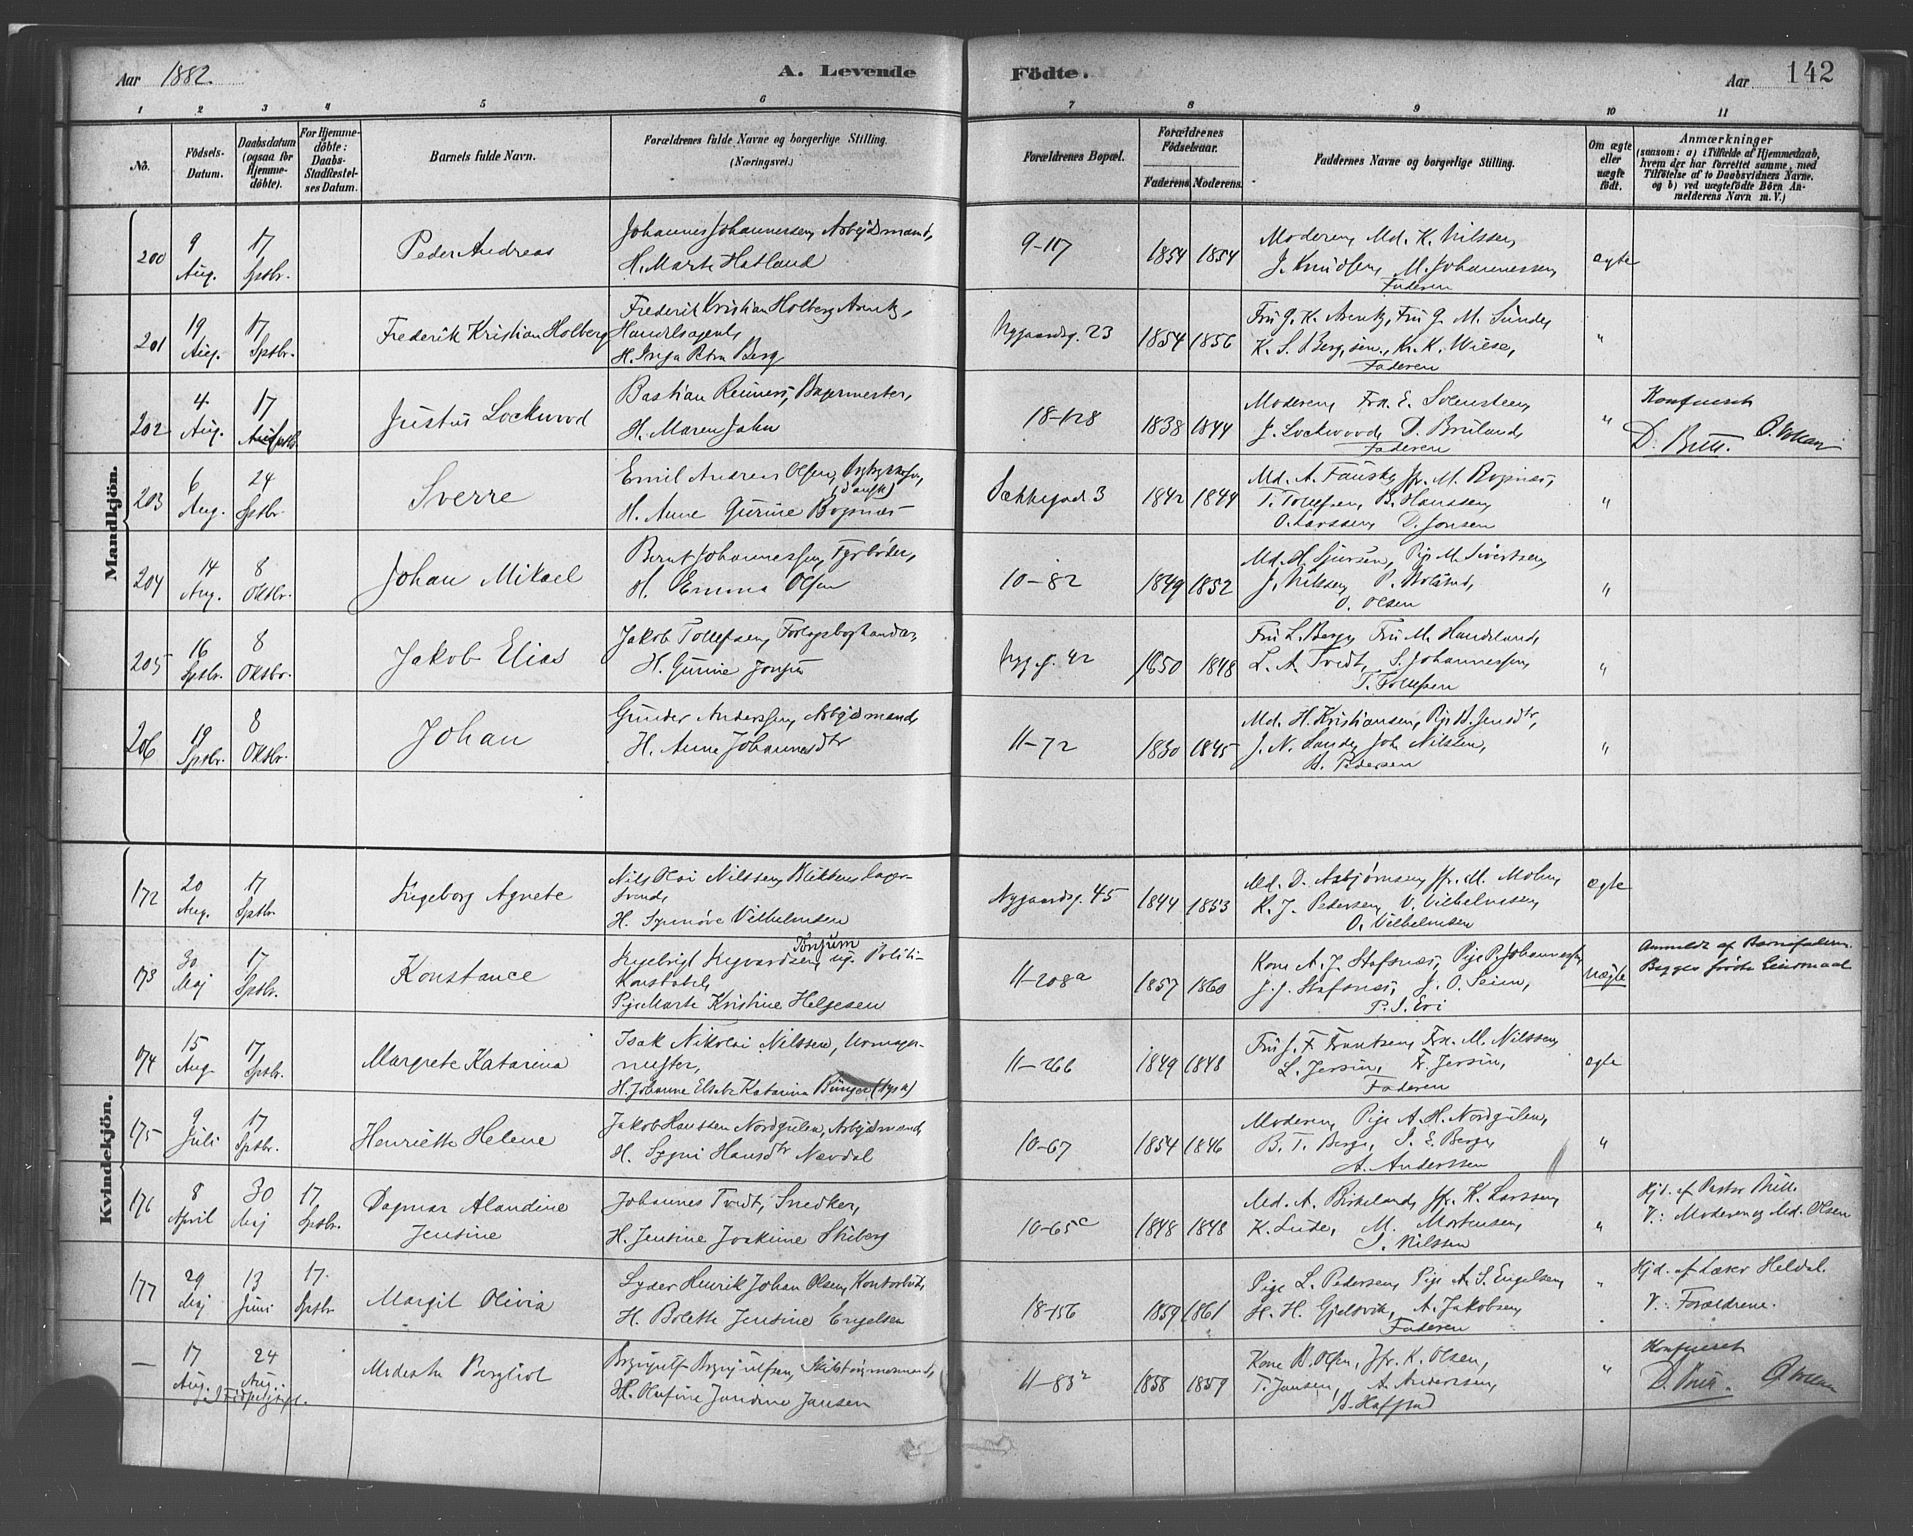 Aar 1882.
A. Levende Födte.
Aar 142
1 2 3 4 5 6 7 8 9 10 11
No.
Födsels-Datum.
Daabsdatum (ogsaa för Hjemme-döbte).
For Hjemme-döbte: Daabs-Stadfæstel-ses Datum.
Barnets fulde Navn.
Forældrenes fulde Navne og borgerlige Stilling.
(Næringsvei.)
Forældrenes Bopæl.
Forældrenes Födselsaar.
Faderens. Moderens.
Faddernes Navne og borgerlige Stilling.
Om ægte eller uægte födt.
Anmærkninger
(saasom: a) i Tilfælde af Hjemmedaab,
hvem der har forrettet samme, med
Tilföielse af to Daabsvidners Navne.
og b) ved uægtefödte Börn An-
melderens Navn m. V.)
Mandkjön.
200 9 Aug. 17 Sptbr. Peder Andreas
Johannes Johannessen, Arbeidsmand,
H. Marte Hatland
9-117 1854 1854
Moderen, Md. K. Nilssen,
J. Knudsen, M. Johannessen,
Faderen
ægte
201 19 Aug. 17 Sptbr. Frederik Kristian Holberg
Frederik Kristian Holberg Arentz,
Handelsagent,
H. Inga Petra Berg
Nygaardsg. 23 1854 1856
Fru G. K. Arentz, Fru G. M. Sunde,
K. S. Berg, sen., K. K. Wiese,
Faderen
"
202 4 Aug. 17 Justus Lockwood
Bastian Reimers, Bagermester,
H. Maren Jahn
18-128 1838 1844
Moderen, Frk. E. Svensteen,
J. Lockwood, D. Bruland,
Faderen
"
Konfereret
D. Brett.
203 6 Aug. 24 Sptbr. Sverre
Emil Andreas Olsen,
(dansk)
H. Anne Gurine Bognæs
3 1842 1844
Md. A. Fauske, Jfr. M. Bognæs,
T. Tollefsen, B. Hanssen,
O. Larssen, D. Jonsen
"
204 14 Aug. 8 Oktbr. Johan Mikael
Bernt Johannessen, Fyrbøder,
H. Emma Olsen
10-82 1849 1852
Md. H. Sjursen, Pige M. Sivertsen,
J. Nilssen, P.
O. Olsen
"
205 16 Sptbr. 8 Oktbr. Jakob Elias
Jakob Tollefsen, Forlagsboghandler,
H. Gurine
Nyg.g. 42 1850 1848
Fru L. Berg, Fru M. Handeland,
L. A. Tvedt, S. Johannessen,
T. Tollefsen
"
206 19 Sptbr. 8 Oktbr. Johan
Gunder Anderssen, Arbeidsmand
H. Anne Johannesdtr
11-72 1830 1845
Md. H. Kristiansen, Pige
J. N. Sande, Joh. Nilssen,
Pedersen
"
Kvindekjön.
172 20 Aug. 17 Sptbr. Ingeborg Agnete
Nils Nilssen, Blikkenslager-
svend,
H. Synnøve Vilhelmsen
Nygaardsg. 45 1844 1853
Md. D. Asbjørnsen, Jfr. M. Mohn,
K. J. Pedersen, V. Vilhelmsen,
O. Vilhelmsen
ægte
173 30 Maj 17 Sptbr. Konstance
Ingebrigt Ingvardsen Tønjum, ug. Politi-
konstabel,
Pige Marte Kristine Helgesen
11-208a 1857 1860
Kone A. J. Stafsnæs, Pige P. Johannessen,
J. J. Stafsnæs, J. O. Seim,
P. J. Evi
uægte
Anmeldt af Barnefaderen.
Begges første Leiermaal
174 15 Aug. 17 Sptbr. Margrete Katarina
Isak Nikolai Nilssen, Urmager-
mester,
H. Johanne Elsabe Katarina Bünger (tysk)
11-266 1849 1848
Fru J. F. Frantsen, Frk. M. Nilssen,
L. Jersin, Fr. Jersin,
Faderen
ægte
175 9 Juli 17 Sptbr. Henriette Helene
Jakob Hanssen Nordgulen, Arbeidsmand
H. Sygni Hansdtr Nævdal
10-67 1854 1846
Moderen, Pige A. H. Nordgulen,
B. T. Berge, S. E. Berge,
A. Anderssen
"
176 8 April 30 Maj 17 Sptbr. Dagmar Alandine
Jensine
Johannes Tvedt, Snedker,
H. Jensine Joakime Stiberg
10-65c 1848 1848
Md. A. Birkeland, Jfr. K. Larssen,
K. Lide, M. Mortensen,
J. Nilssen
"
Hjd. af Pastor Brett.
V.: Moderen og Md. Olsen
177 29 Maj 13 Juni 17 Sptbr. Margit Olivia
Lyder Henrik Johan Olsen, Kontorbud,
H. Bolette Jensine Engelsen
18-156 1859 1861
Pige L. Pedersen, Pige A. S. Engelsen,
H. H. Gjelsvik, A. Jakobsen,
Faderen
"
Hjd. af Læser Heldal.
V.: Forældrene.
— 17 Aug. 24 Aug. Modesta Bergliot
Brynjulf Brynjulfsen, Skibstømmermand,
H. Rufine Jandine Jansen
11-83² 1858 1859
Kone B. Olsen, Jfr. K. Olsen,
T. Jansen, A. Anderssen,
B. Hafstad
"
Konfereret
D. Brett.